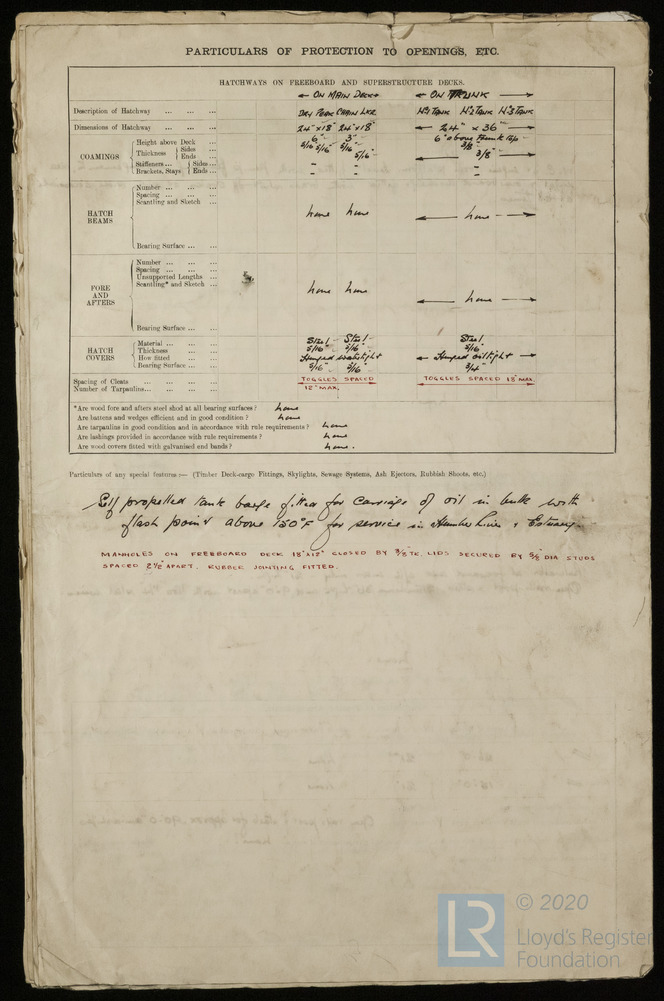 PARTICULARS OF PROTECTION TO OPENINGS, ETC.
HATCHWAYS ON FREEBOARD AND SUPERSTRUCTURE DECKS.
← ON MAIN DECK → ← ON TRUNK →
Description of Hatchway ... ... ... DRY PEAK CHAIN LKR No1 TANK No2 TANK No3 TANK
Dimensions of Hatchway ... ... ... 24" x 18" 24" x 18" ← 24" x 36" →
COAMINGS
Height above Deck ... 6" 3" 6" above trunk top
Thickness { Sides ... 5/16 5/16" 5/16" 3/8"
Ends ... 5/16" ← 3/8" →
Stiffeners ... { Sides ... - - -
Brackets, Stays { Ends ... - - -
HATCH BEAMS
Number ... ... ...
Spacing ... ... ...
Scantling and Sketch ...
none none ← none →
Bearing Surface ... ...
FORE AND AFTERS
Number ... ... ...
Spacing ... ... ...
Unsupported Lengths ...
Scantling* and Sketch ...
none none ← none →
Bearing Surface ... ...
HATCH COVERS
Material ... ... ... Steel Steel Steel
Thickness ... 5/16" 5/16" 5/16"
How fitted ... Hinged watertight ← Hinged oiltight →
Bearing Surface ... ... 5/16" 5/16" 3/4"
Spacing of Cleats ... ... ... ... TOGGLES SPACED TOGGLES SPACED 18" MAX.
Number of Tarpaulins ... ... ... ... 12" MAX.
*Are wood fore and afters steel shod at all bearing surfaces? none
Are battens and wedges efficient and in good condition? none
Are tarpaulins in good condition and in accordance with rule requirements? none
Are lashings provided in accordance with rule requirements? none
Are wood covers fitted with galvanised end bands? none.
Particulars of any special features :— (Timber Deck-cargo Fittings, Skylights, Sewage Systems, Ash Ejectors, Rubbish Shoots, etc.)
Self propelled tank barge fitted for carriage of oil in bulk with
flash point above 150°F for service in Humber River & Estuary
MANHOLES ON FREEBOARD DECK 18" x 12" CLOSED BY 3/8" TK. LIDS SECURED BY 5/8 DIA STUDS
SPACED 2 1/2" APART. RUBBER JOINTING FITTED.
LR
© 2020
Lloyd's Register
Foundation